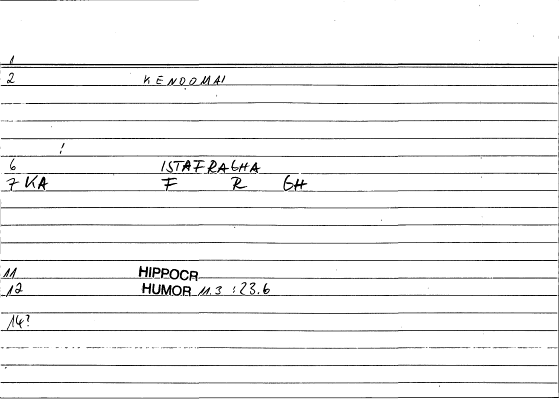 1
2 KENOOMAI
!
6 ISTAFRAGHA
7 KA F R GH
11 HIPPOCR
12 HUMOR 11.3 :23.6
14?